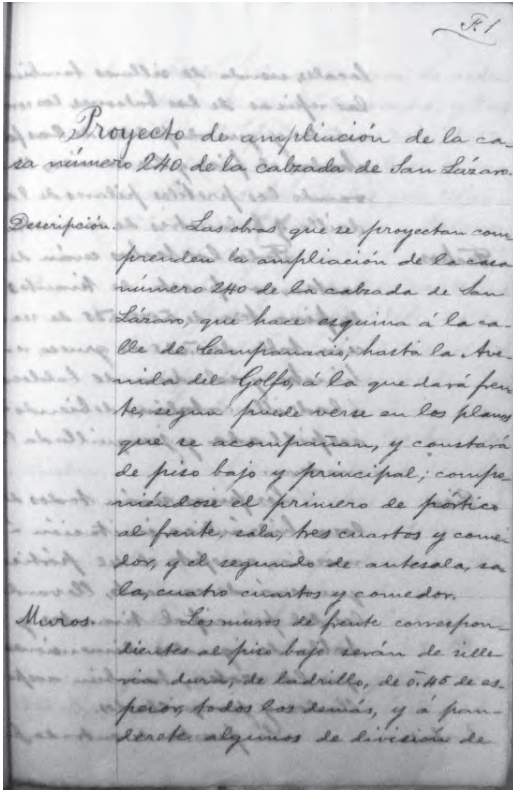 F. 1
Proyecto de ampliación de la ca-
sa número 240 de la calzada de San Lázaro.
Descripción. Las obras que se proyectan com
prenden la ampliación de la casa
número 240 de la calzada de San
Lázaro, que hace esquina á la ca-
lle de Campanario, hasta la Ave-
nida del Golfo, á la que dará fren-
te, segun puede verse en los planos
que se acompañan, y constará
de piso bajo y principal; compo-
niéndose el primero de pórtico
al frente, sala, tres cuartos y come-
dor, y el segundo de antesala, sa-
la, cuatro cuartos y comedor.
Muros. Los muros de frente correspon-
dientes al piso bajo serán de sille-
ria dura, de ladrillo, de 0.45 de es-
pesor, todos los demás, y á pan-
derete algunos de división de